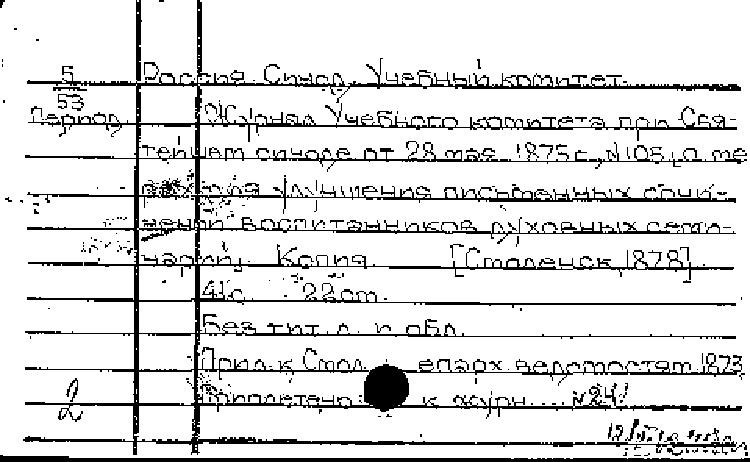 5
53
Россия. Синод. Учебный комитет.
Период. Журнал Учебного комитета при Свя-
тейшем синоде от 28 мая 1875 г., №105, о ме
рах для улучшения письменных сочи-
нений воспитанников духовных семи-
нарий. Копия. [Смоленск, 1878].
41с. 22 см.
Без тит. л. и обл.
Прил. к Смол. епарх ведомостям 1873
Приплетено к журн. №24!
2